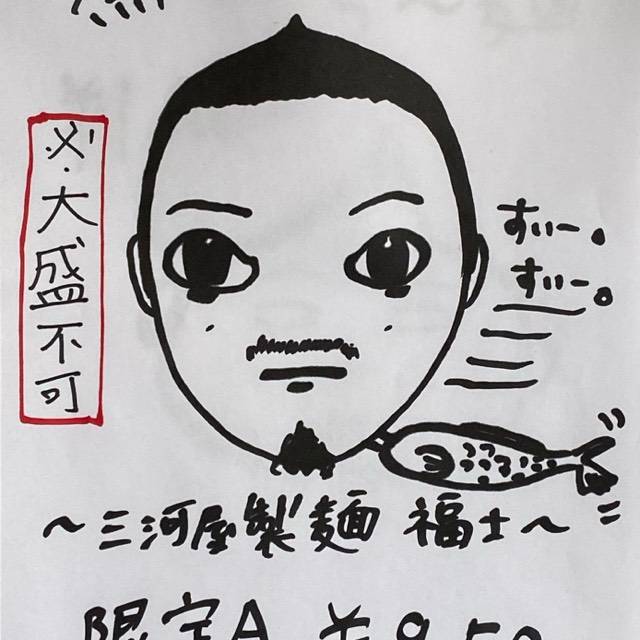 必・大盛不可
すいー。
すいー。
〜三河屋製麺 福士〜
限定A ¥950